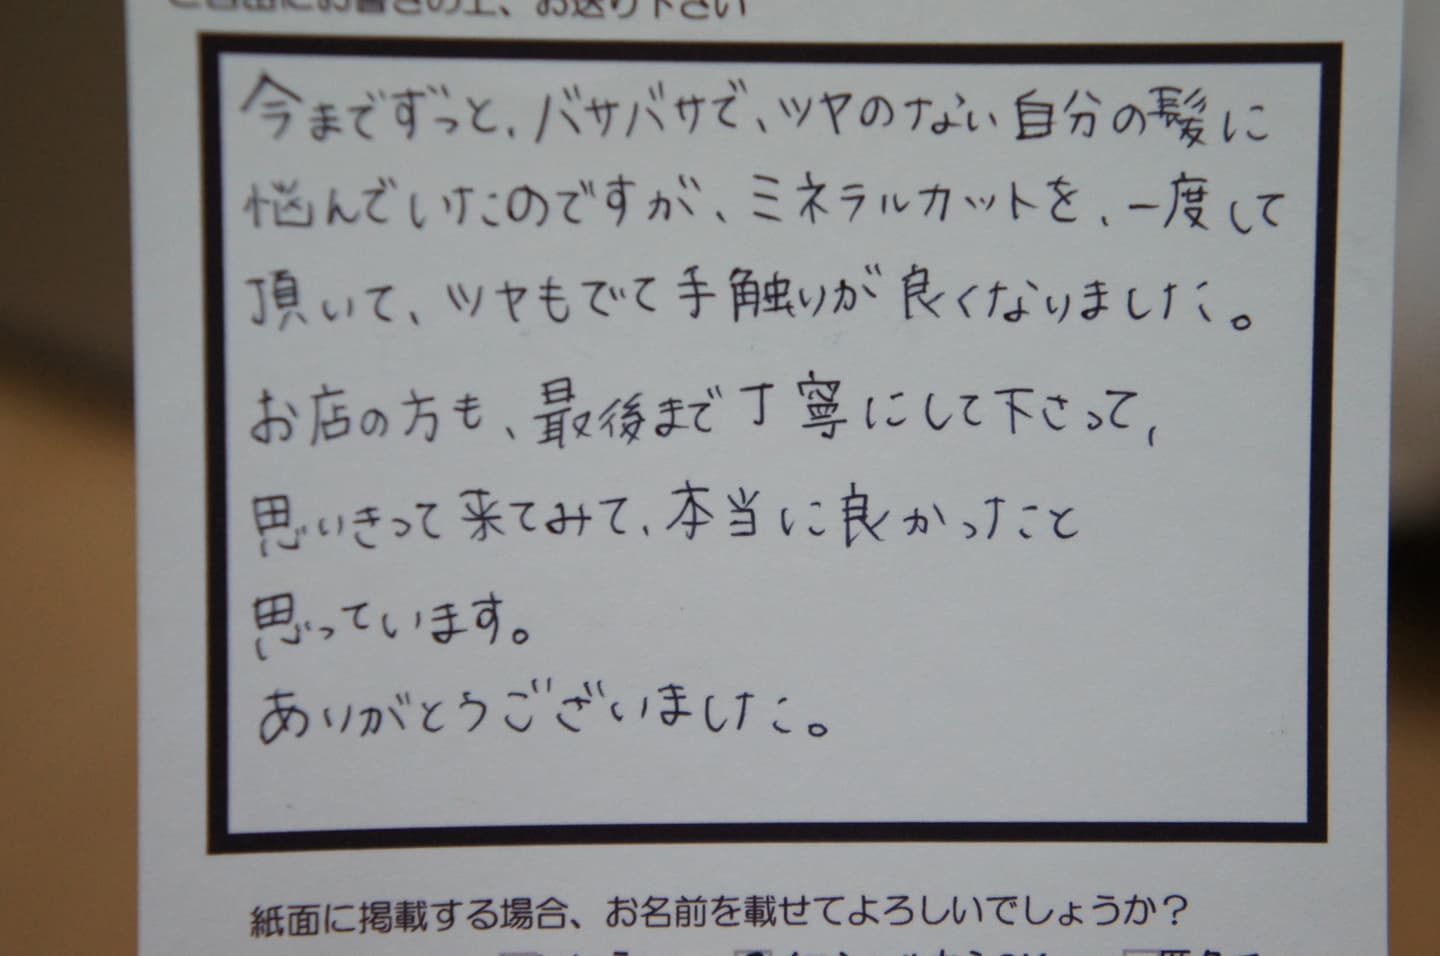 お書きの上、お送り下さい
今までずっと、バサバサで、ツヤのない自分の髪に
悩んでいたのですが、ミネラルカットを、一度して
頂いて、ツヤもでて手触りが良くなりました。
お店の方も、最後まで丁寧にして下さって、
思いきって来てみて、本当に良かったこと
思っています。
ありがとうございました。
紙面に掲載する場合、お名前を載せてよろしいでしょうか？